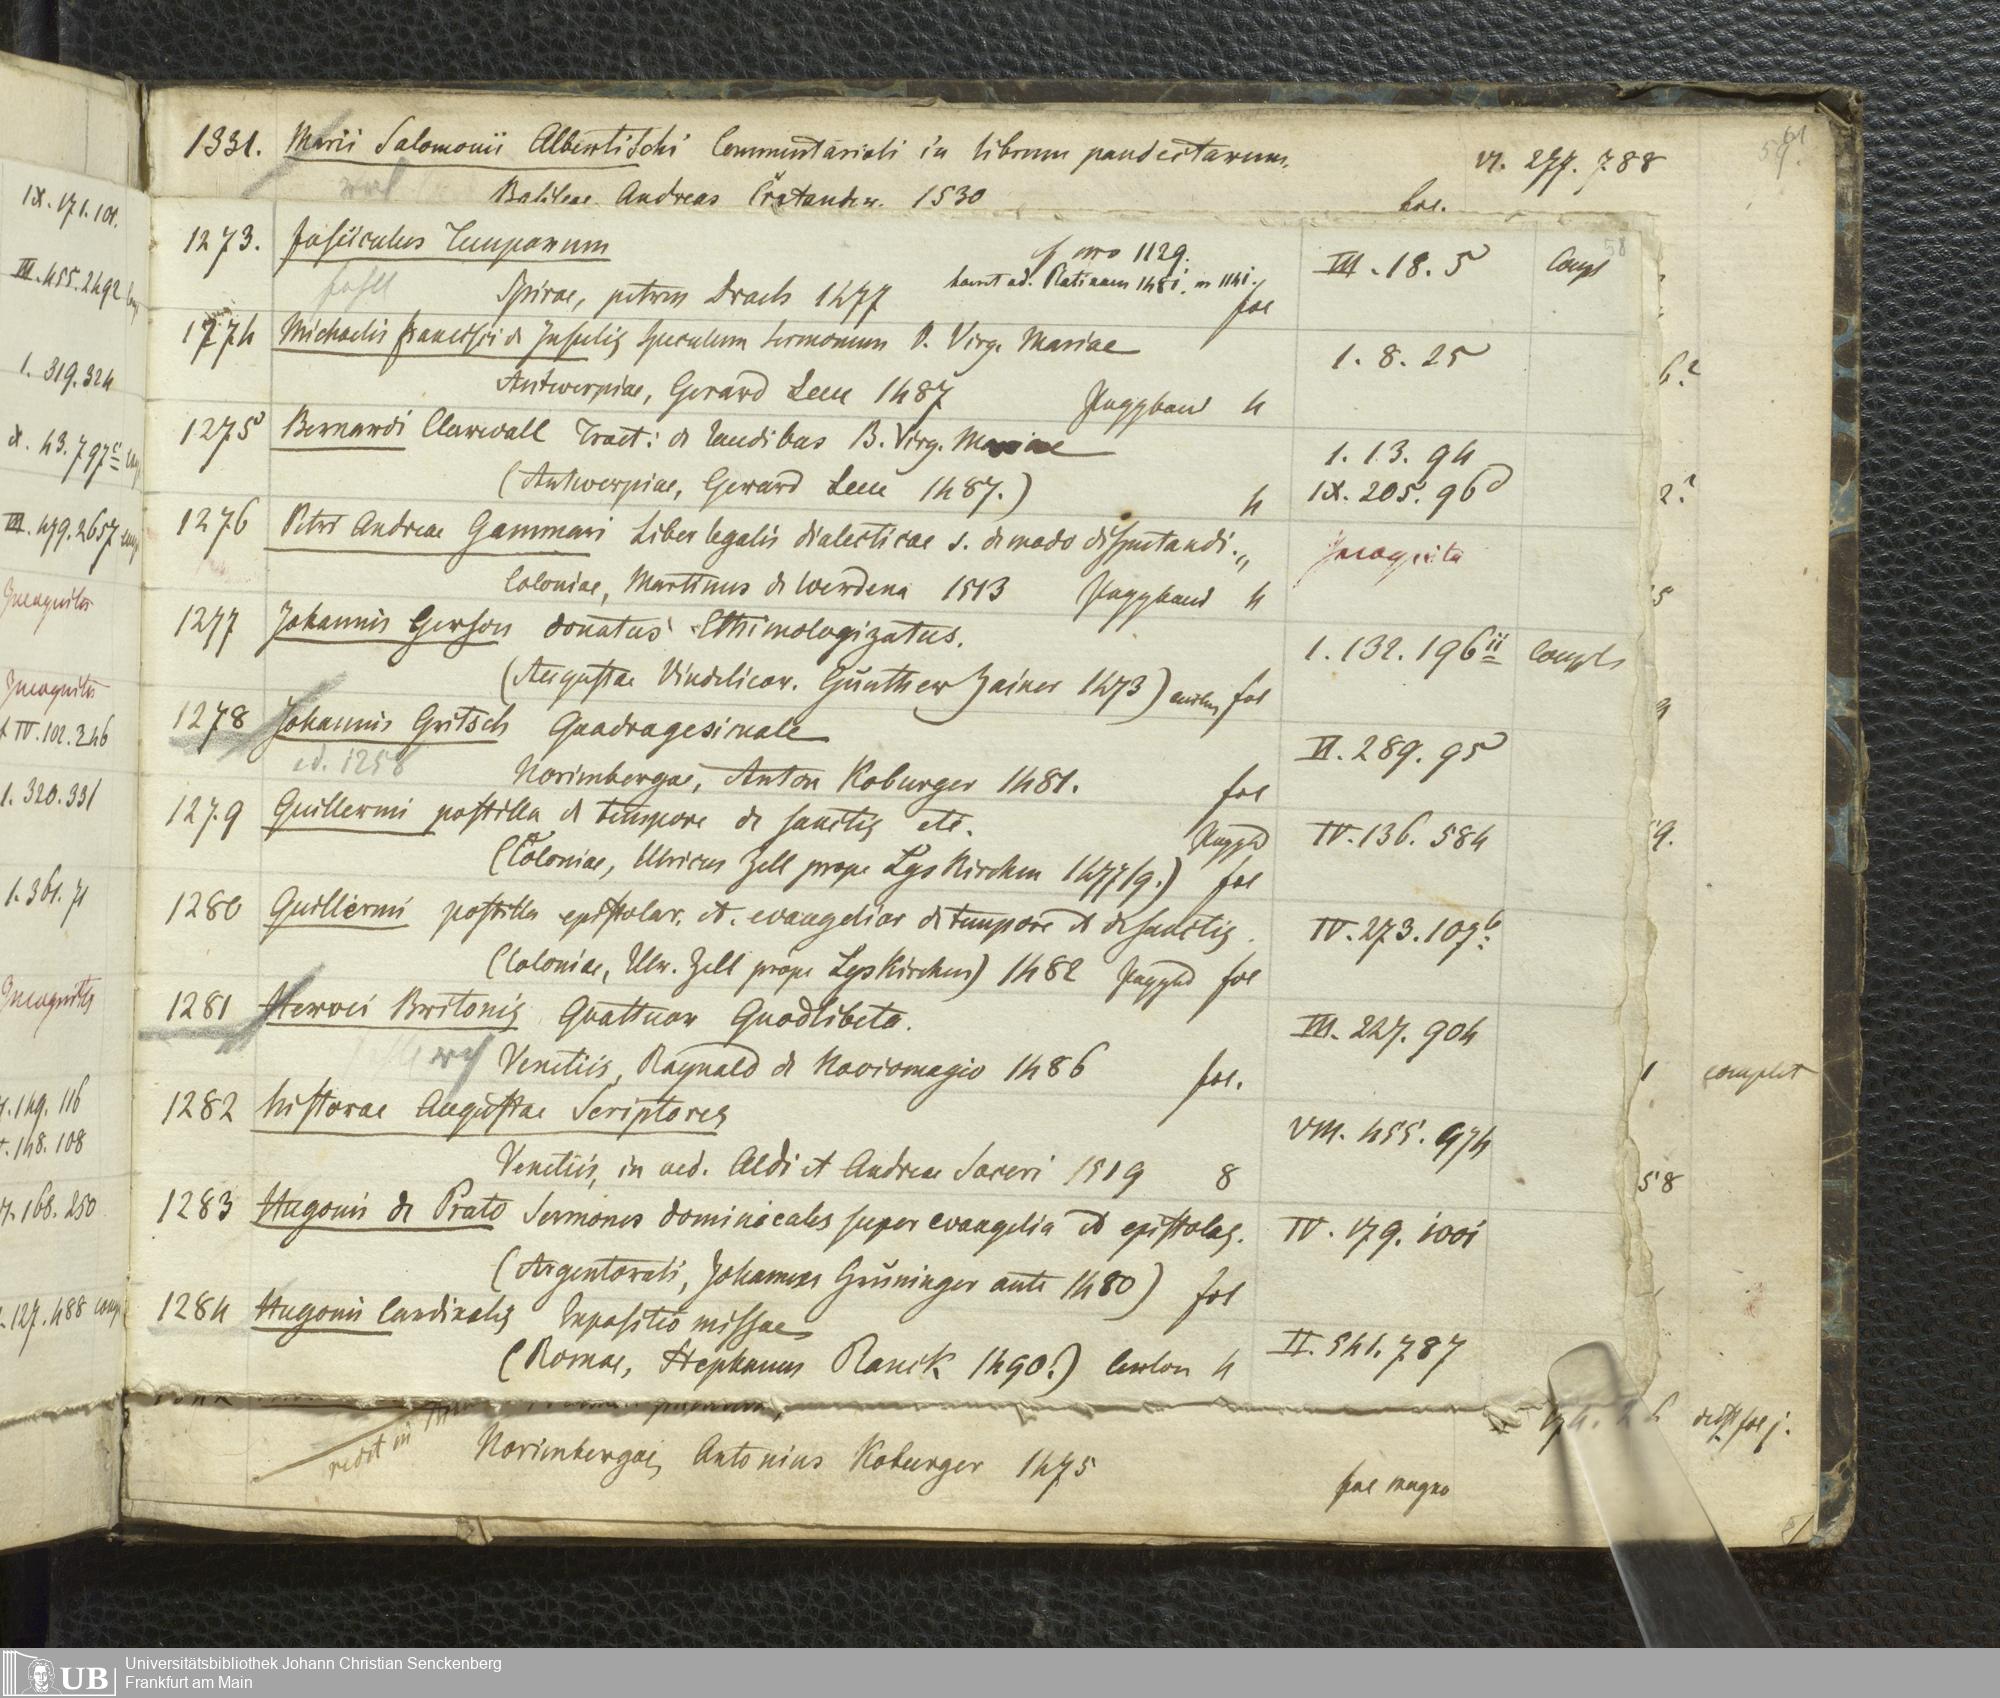 1331. Marii Salomonii Albertischi Commentarioli in librum pandectarum. VI. 277. 788
Basileae Andreas Cratander. 1530 fol.
1273. Fasciculus Temporum cf nro 1129. III. 18. 5 compl 58
Spirae, petrus Drach 1477 fol
1274 Michaelis francisci de Insulis Speculum sermonum B. Virg. Mariae 1. 8. 25
Antwerpiae, Gerard Leeu 1487 Pappband 4
1275 Bernardi Clarevall Tract: de laudibus B. Virg. Mariae 1. 13. 94
(Antwerpiae, Gerard Leeu 1487.) 4 IX. 205. 96
1276 Petri Andreae Gammari Liber legalis dialecticae s. de modo disputandi. Incognita
Coloniae, Martinus de Werdena 1513 Pappband 4
1277 Johannis Gerson donatus Ethimologizatus. 1. 132. 196 compl
(Augustae Vindelicor. Günther Zainer 1473) fol
1278 Johannis Gritsch Quadragesimale VI. 289. 95
ed. 1258
Norimbergae, Anton Koburger 1481. fol
1279 Guillermi postilla de tempore de sanctis etc. Pappbd IV. 136. 584
(Coloniae, Ulricus Zell prope Lyskirchen 1477/9.) fol
1280 Guillermi postilla epistolar. et. evangelior de tempore et de sanctis. IV. 273. 107
(Coloniae, Ulr. Zell prope Lyskirchen) 1482 Pappbd fol
1281 Hervei Britonis Quattuor Quodlibeta. III. 227. 904
Venetiis, Raynald de Noviomagio 1486 fol.
1282 historae Augustae Scriptores VIII. 455. 974
Venetiis, in aed. Aldi et Andreae Soceri 1519 8
1283 Hugonis de Prato Sermones dominicales super evangelia et epistolas. IV. 179. 1001
(Argentorati, Johannes Grüninger ante 1480) fol
1284 Hugonis Cardinalis Expositio missae II. 541. 787
(Romae, Stephanus Planck 1490.) 4
Norimbergae, Antonius Koburger 1475 fol magno
IX. 171. 101.
III. 455. 2492
1. 319. 324
X. 43. 797
III. 479. 2657 compl
Incognita
Incognita
IV. 102. 246
1. 320. 331
1. 361. 71
Incognita
149. 116
148. 108
168. 250
127. 488 comp
complet
58
Universitätsbibliothek Johann Christian Senckenberg
Frankfurt am Main
UB